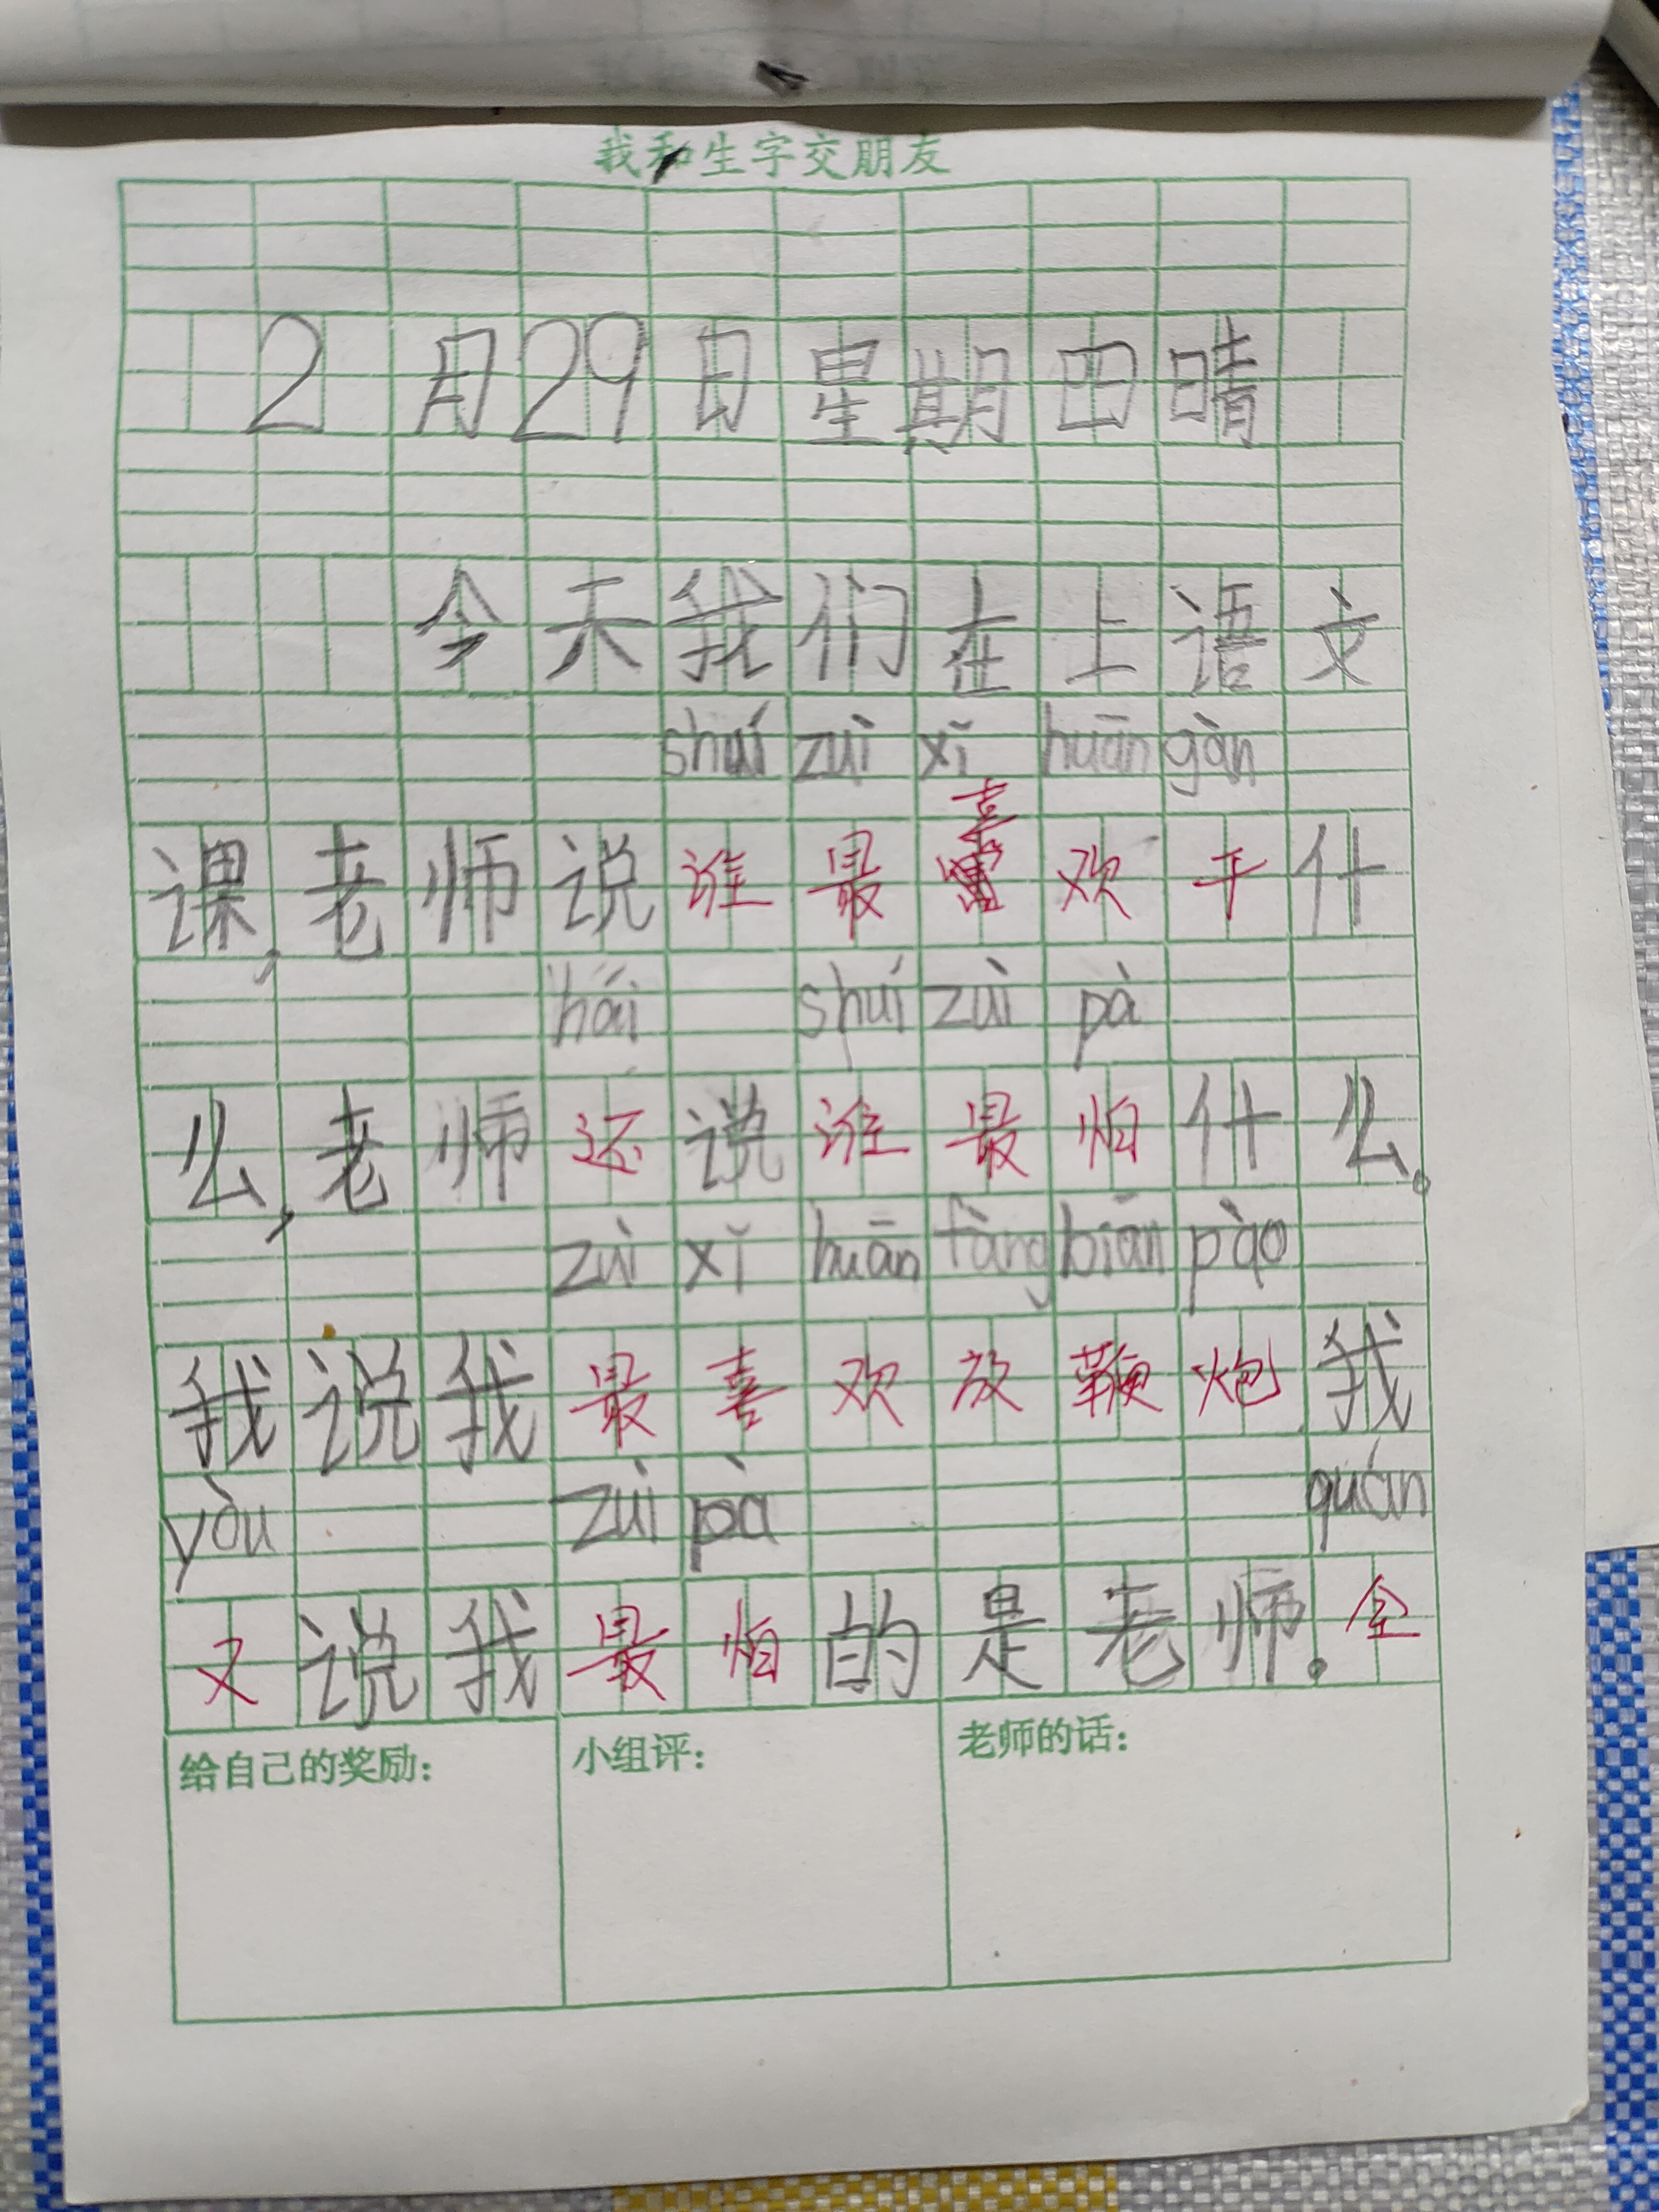 我和生字交朋友
2月29日星期四晴
今天我们在上语文
shuí zuì xǐ huān gàn
喜
课,老师说谁最欢干什
hái shuí zuì pà
么,老师还说谁最怕什么。
zuì xǐ huān fàng biān pào
我说我最喜欢放鞭炮我
yòu zuì pà quán
又说我最怕的是老师。全
给自己的奖励:
小组评:
老师的话: